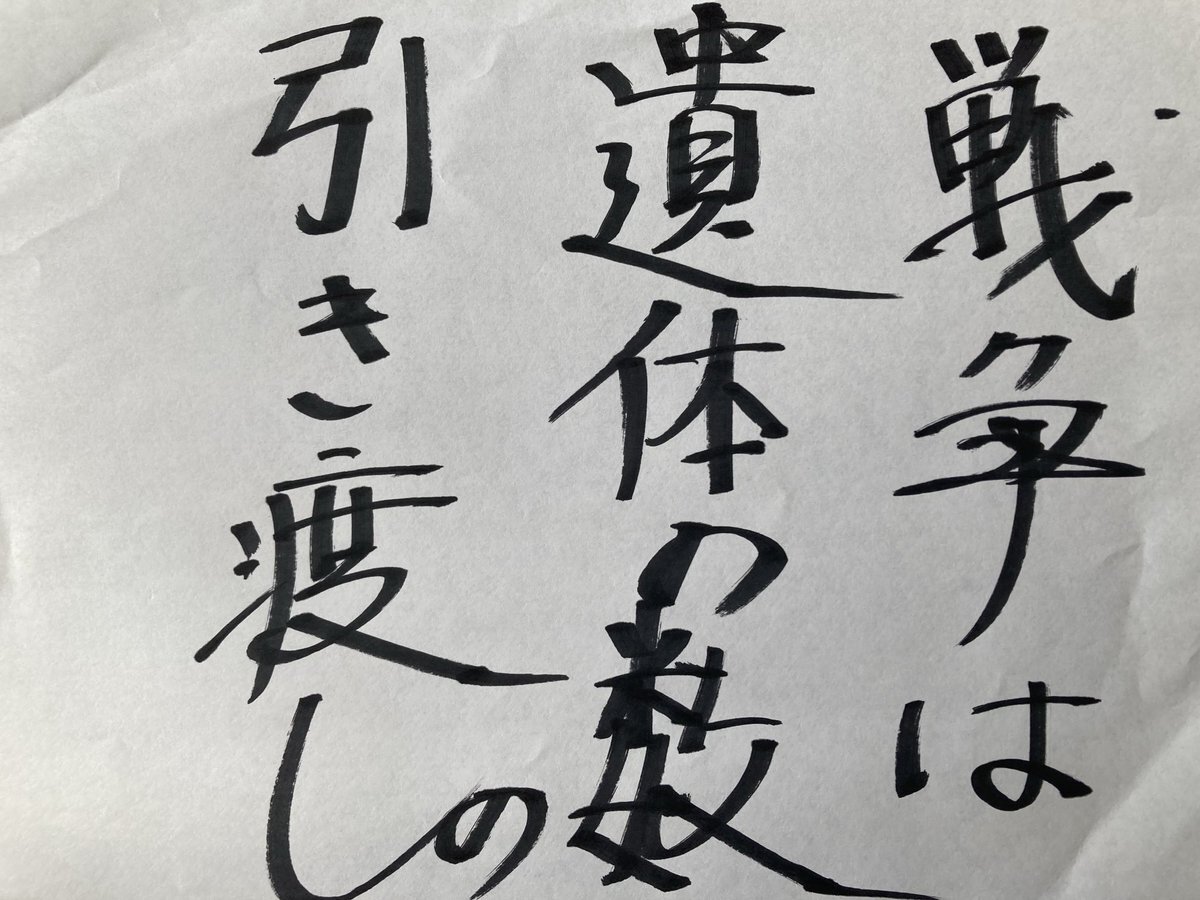 戦争は
遺体の数
引き渡しの